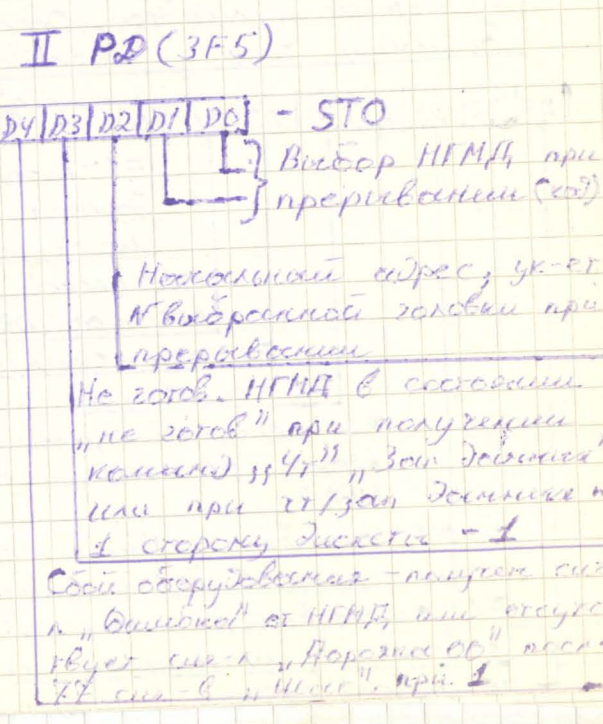 II PD (3F5)
D4 D3 D2 D1 D0 - ST0
Выбор НГМД при
прерывании (код)
Начальный адрес, ук-ет
N выбранной головки при
прерывании
Не готов. НГМД в состоянии
„не готов" при получении
команд „Чт" „Зап данных"
или при чт/зап данных
1 сторону дискеты - 1
Сбой оборудования - получен
„Ошибка" от НГМД или отсутс
твует сиг-л „Дорожка 00" посл
77 сиг-в „Шаг". при. 1